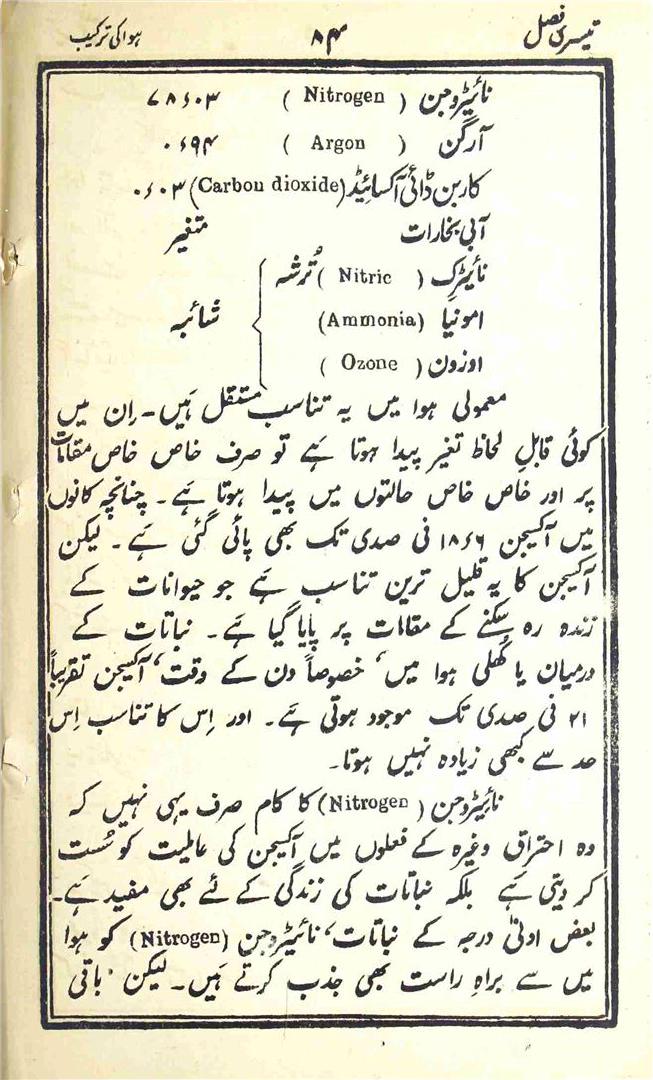 تیسری فصل ۸۴ ہوا کی ترکیب
نائیٹروجن ( Nitrogen ) ۷۸ء۰۳
آرگن ( Argon ) ۰ء۹۴
کاربن ڈائی آکسائیڈ (Carbon dioxide) ۰ء۰۳
آبی بخارات متغیر
نائیٹرک ( Nitric ) تُرشہ
امونیا (Ammonia) شائبہ
اوزون ( Ozone )
معمولی ہوا میں یہ تناسب مستقل ہَیں۔ اِن میں
کوئی قابلِ لحاظ تغیر پیدا ہوتا ہَے تو صرف خاص خاص مقامات
پر اور خاص خاص حالتوں میں پیدا ہوتا ہَے۔ چنانچہ کانوں
میں آکسیجن ۱۸ء۶ فی صدی تک بھی پائی گئی ہَے۔ لیکن
آکسیجن کا یہ قلیل ترین تناسب ہَے جو حیوانات کے
زندہ رہ سکنے کے مقامات پر پایا گیا ہَے۔ نباتات کے
درمیان یا کُھلی ہوا میں، خصوصاً دن کے وقت، آکسیجن تقریباً
۲۱ فی صدی تک موجود ہوتی ہَے۔ اور اِس کا تناسب اِس
حد سے کبھی زیادہ نہیں ہوتا۔
نائیٹروجن ( Nitrogen) کا کام صرف یہی نہیں کہ
وہ احتراق وغیرہ کے فعلوں میں آکسیجن کی عاملیت کو سُست
کر دیتی ہَے بلکہ نباتات کی زندگی کے لئے بھی مفید ہَے۔
بعض ادنیٰ درجہ کے نباتات، نائیٹروجن (Nitrogen) کو ہوا
میں سے براہِ راست بھی جذب کرتے ہَیں۔ لیکن باقی